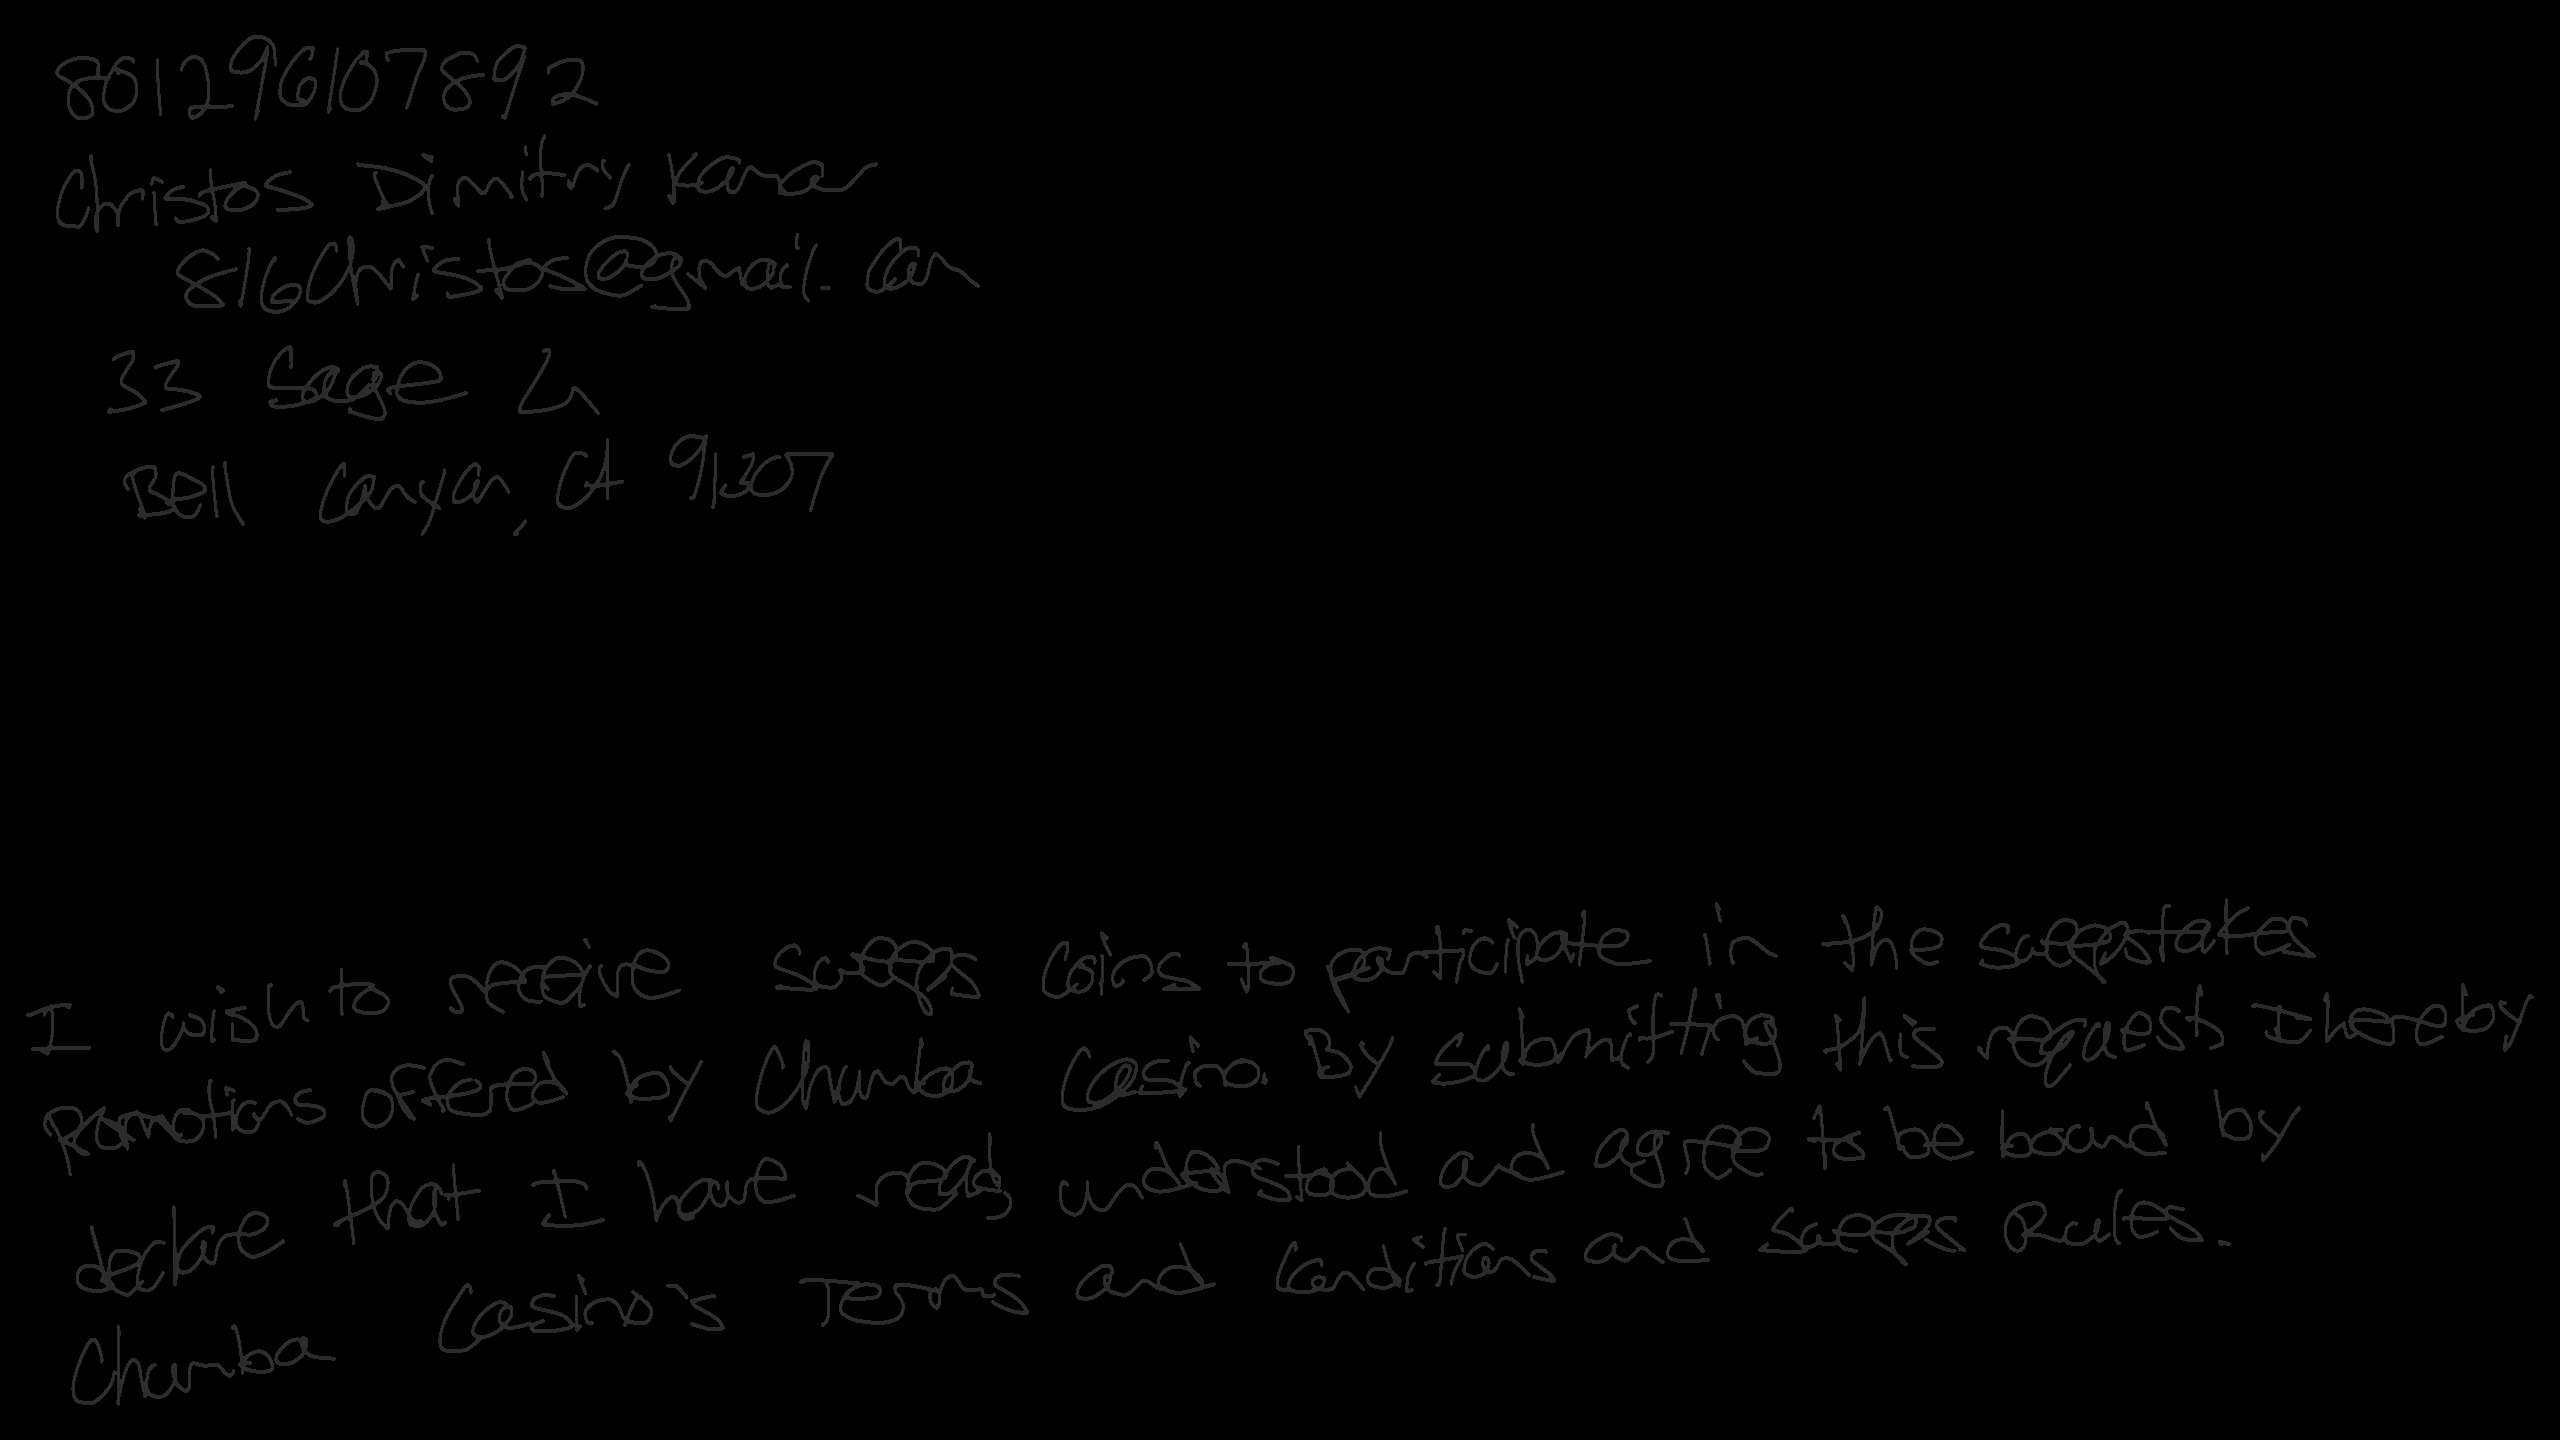 801296107892
Christos Dimitry Kanar
816Christos@gmail.com
33 Sage Ln
Bell Canyon, CA 91307
I wish to receive sweeps coins to participate in the sweepstakes
Promotions offered by Chumba Casino. By submitting this request, I hereby
declare that I have read, understood and agree to be bound by
Chumba Casino's Terms and Conditions and Sweeps Rules.